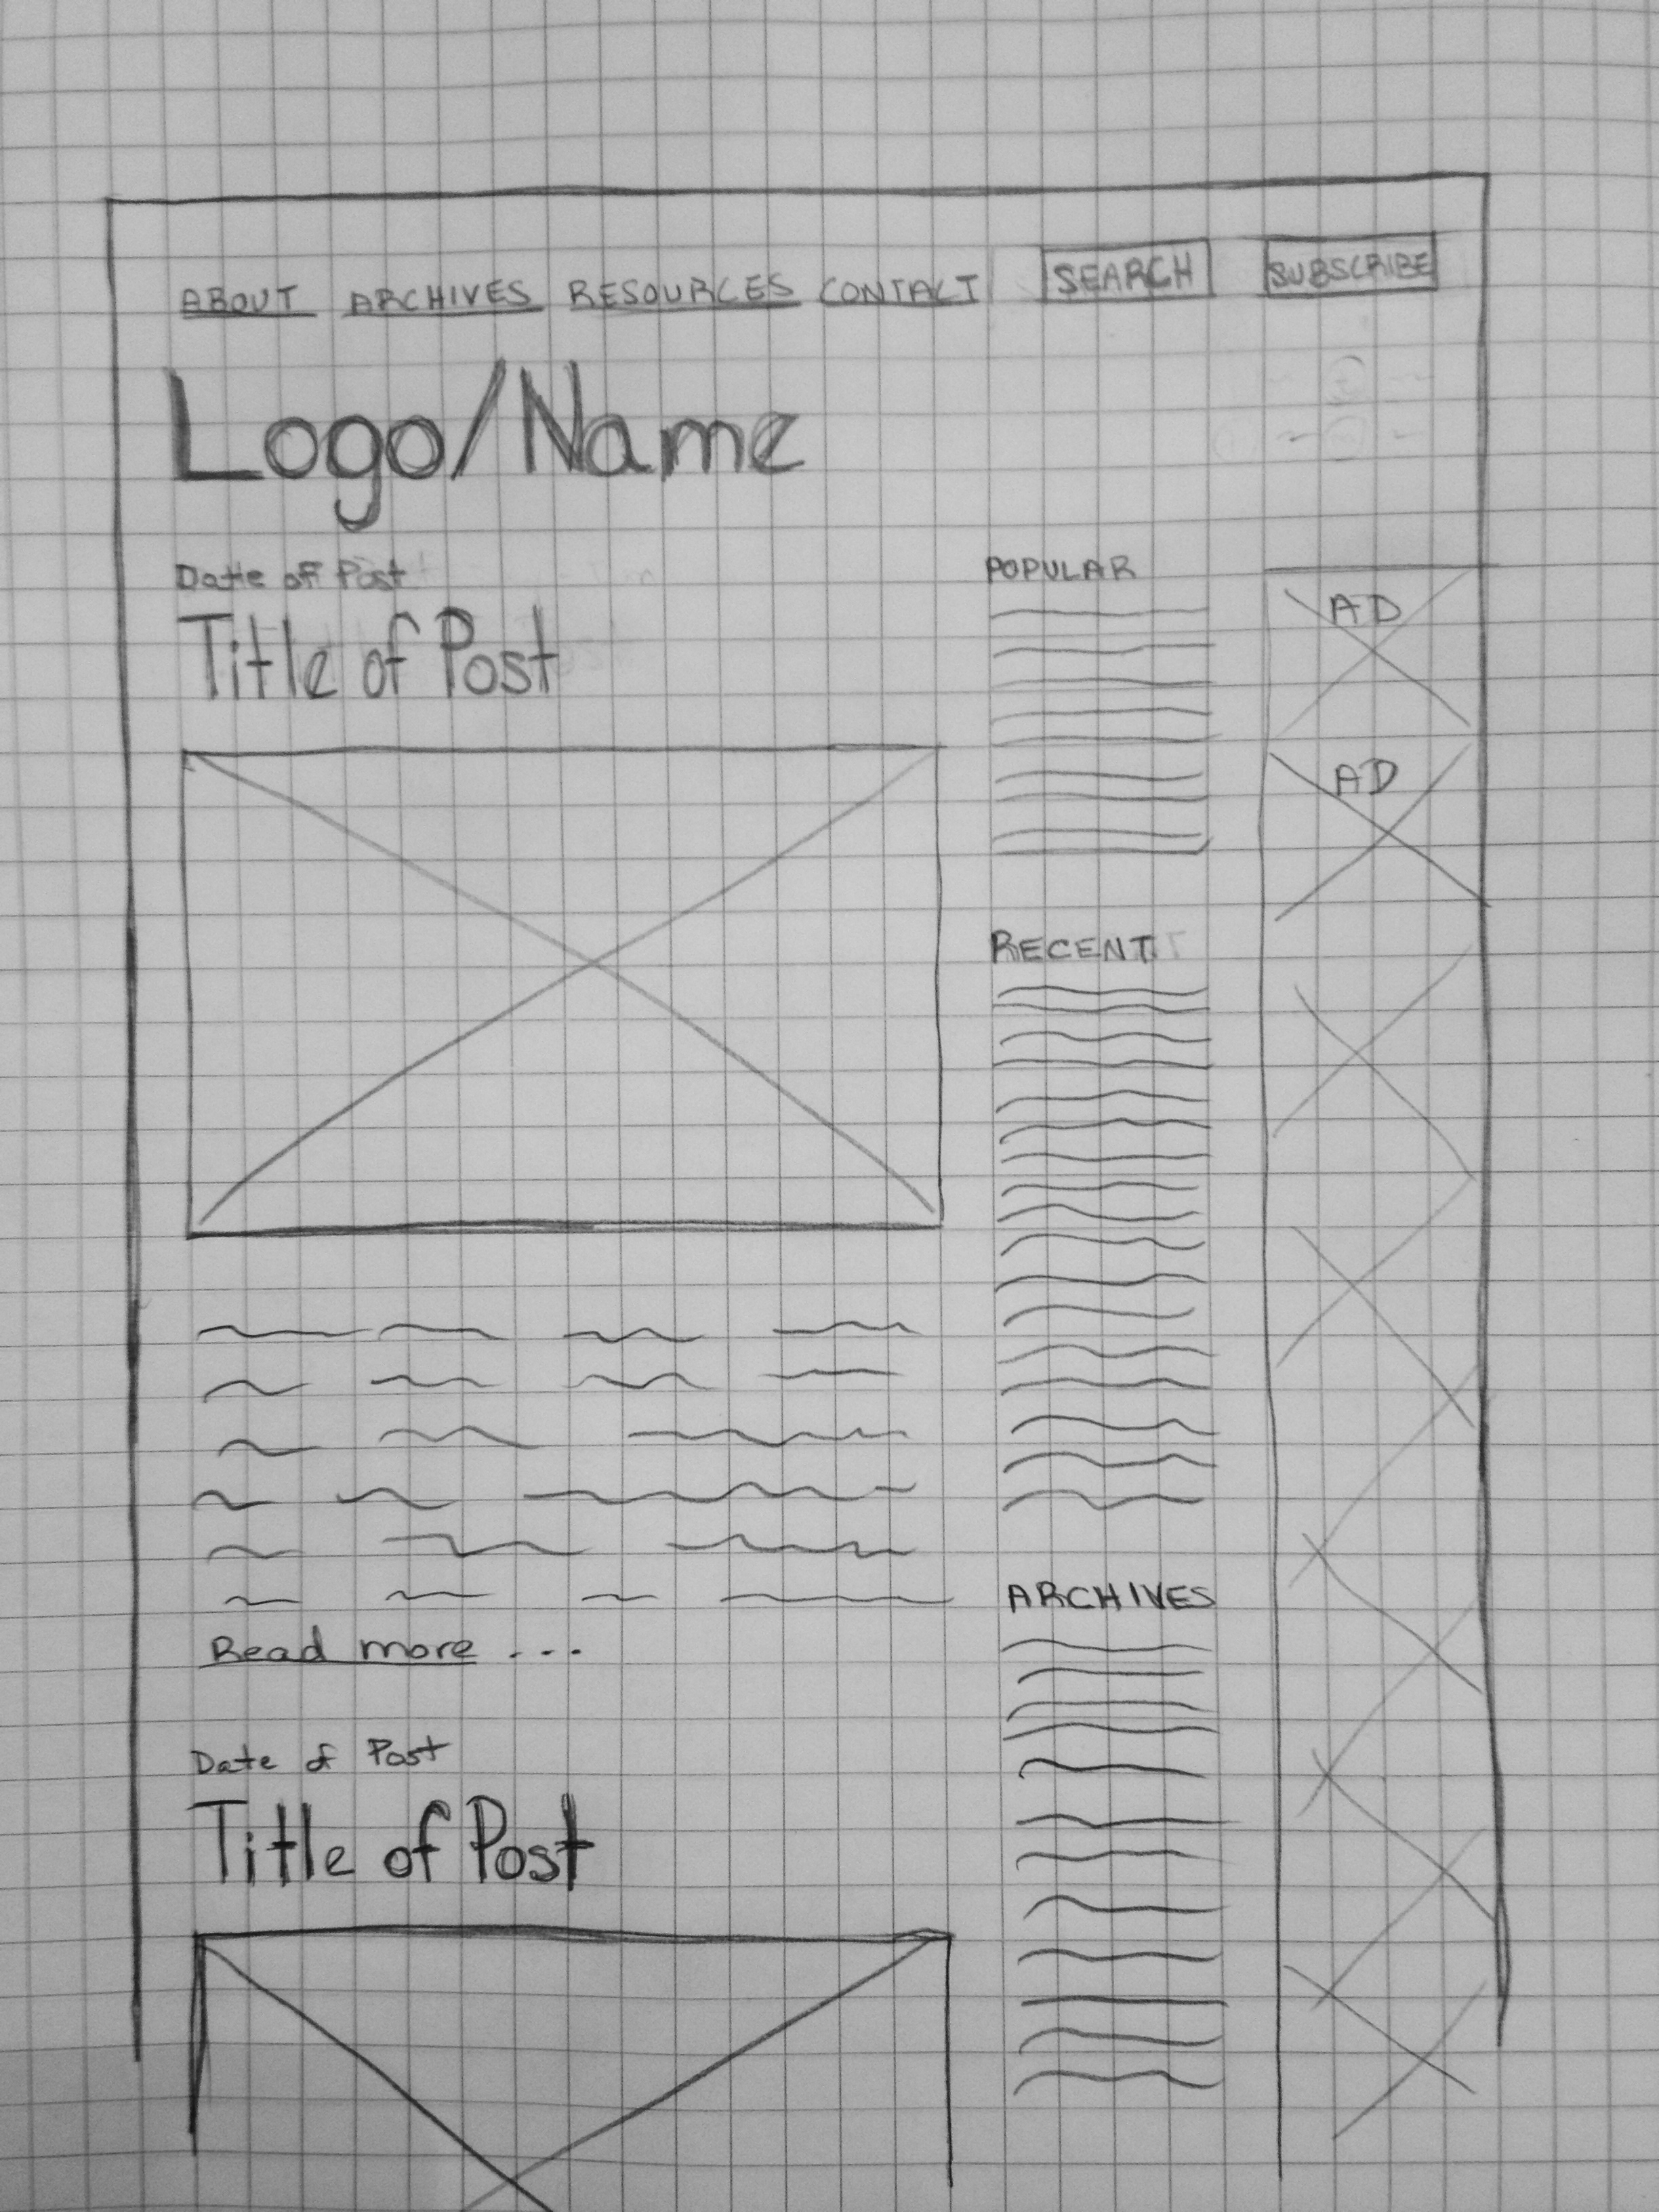 ABOUT ARCHIVES RESOURCES CONTACT SEARCH SUBSCRIBE
Logo/Name
Date of Post
Title of Post
Read more ...
Date of Post
Title of Post
POPULAR
RECENT
ARCHIVES
AD
AD